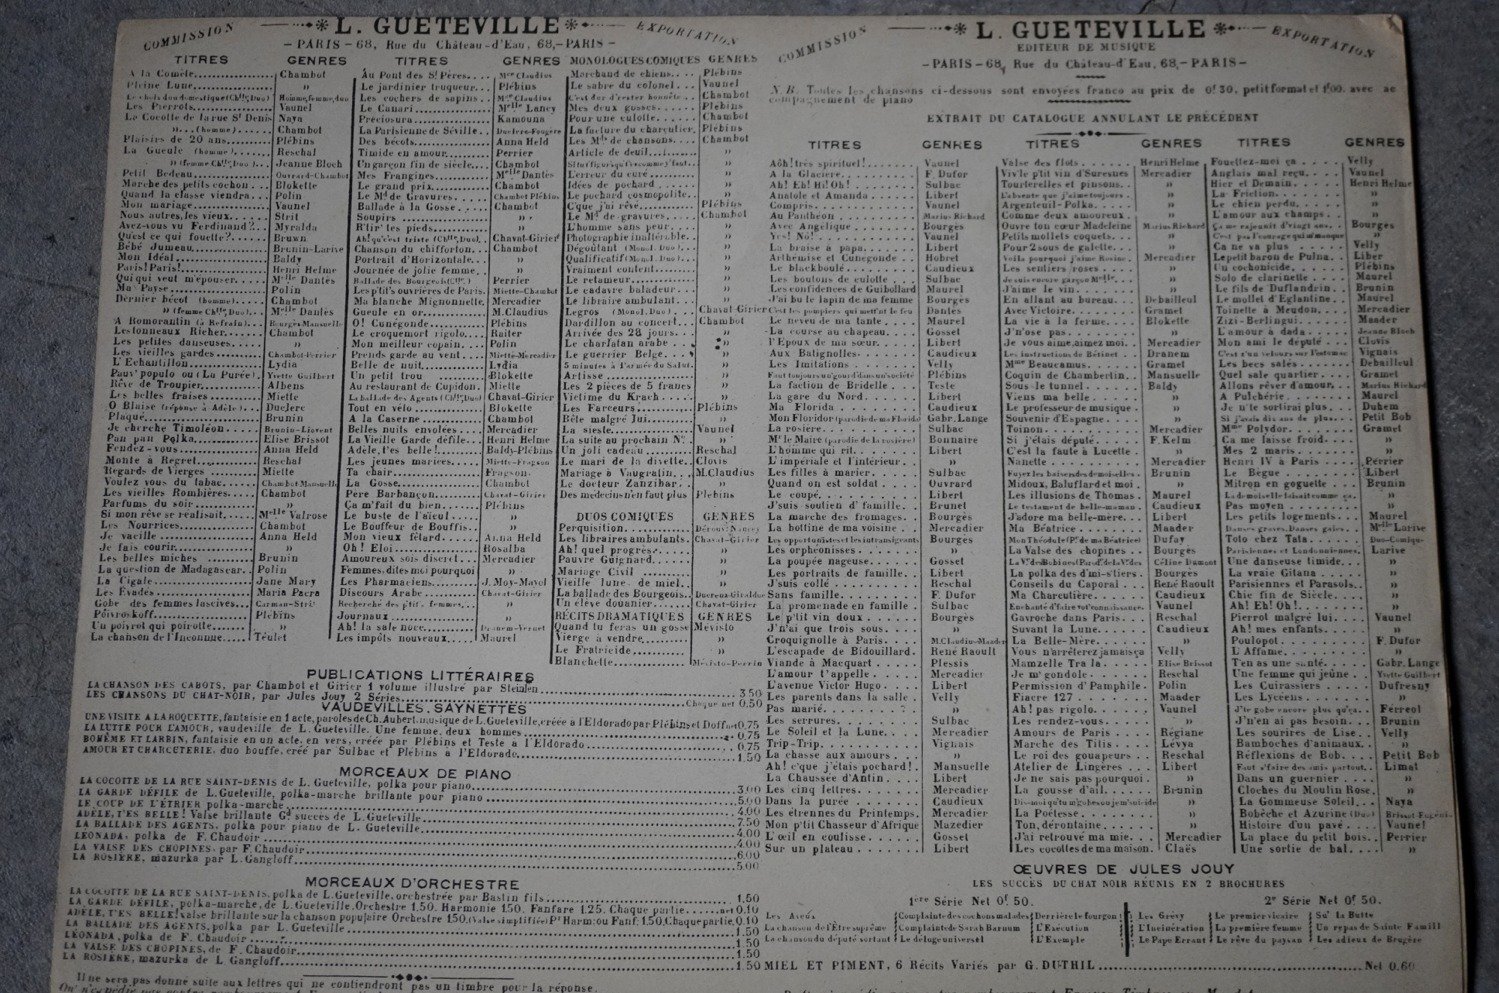 COMMISSION L. GUETEVILLE EXPORTATION
— PARIS — 68, Rue du Château-d'Eau, 68, — PARIS —
TITRES GENRES
A la Comète Chambot
Pleine Lune »
Les Pierrots Vaunel
La Cocotte de la rue St Denis Naya
» (homme) Chambot
Plaisirs de 20 ans Plébins
La Gueule (homme) Reschal
» (femme Chlle, Duo) Jeanne Bloch
Petit Bedeau Ouvrard-Chambot
Marche des petits cochons Blokette
Quand la classe viendra Polin
Mon mariage Vaunel
Nous autres, les vieux Strit
Avez-vous vu Ferdinand? Myralda
Qu'est ce qui fouette? Bruwn
Bébé Jumeau Brunin-Larive
Mon Idéal Baldy
Paris! Paris! Henri Helme
Qui qui veut m'épouser Melle Dantès
Ma Payse Polin
Dernier bécot (homme) Chambot
» (femme Chlle, Duo) Melle Dantès
A Romorantin (à Refrain) Bourgès-Mansuelle
Les tonneaux Richer Chambot
Les petites danseuses »
Les vieilles gardes Chambot-Perrier
L'Echantillon Lydia
Pauv' populo ou (La Purée) Yvette Guilbert
Rêve de Troupier Albens
Les belles fraises Miette
O Blaise (réponse à Adèle) Duclerc
Plaque Brunin
Je cherche Timoléon Brunin-Liovent
Pan pan Polka Elise Brissot
Fendez-vous Anna Held
Monte à Regret Reschal
Regards de Vierges Miette
Voulez vous du tabac Chambot Mansuelle
Les vieilles Rombières Chambot
Parfums du soir »
Si mon rêve se réalisait Melle Valrose
Les Nourrices Chambot
Je vacille Anna Held
Je fais courir »
Les belles miches Brunin
La question de Madagascar Polin
La Cigale Jane Mary
Les Evadés Maria Pacra
Gobe des femmes lascives
Poivroskoff Plébins
Un poivrot qui poirotte »
La chanson de l'Inconnue Téulet
TITRES GENRES
Au Pont des Sts Pères Mme Claudius
Le jardinier truqueur Plébins
Les cochers de sapins Mme Claudius
Le Canari Melle Lancy
Préciosura Kamouna
La Parisienne de Séville Duclerc-Fougère
Des bécots Anna Held
Timide en amour Perrier
Un garçon fin de siècle Chambot
Mes Frangines Melle Dantès
Le grand prix Chambot
Le Md de Gravures Chambot Plébins
Ballade à la Gosse Chambot
Soupirs »
R'lir' les pieds »
Ah! qu'c'est triste (Chlle, Duo) Chavat-Girier
Chanson du chifforton »
Portrait d'Horizontale »
Journée de jolie femme »
Ballade des Bourgeois (Chlle) Perrier
Les p'tit's ouvrières de Paris Miette-Chambot
Ma blanche Mignonnette Mercadier
Gueule en or M. Claudius
O! Cunégonde Plébins
Le croquemort rigolo Raiter
Mon meilleur copain Polin
Prends garde au vent Miette-Mercadier
Belle de nuit Lydia
Un petit trou Blokette
Au restaurant de Cupidon Miette
La ballade des Agents (Chlle, Duo) Chavat-Girier
Tout en vélo Blokette
A la Caserne Chambot
Belles nuits envolées Mercadier
La Vieille Garde défile Henri Helme
Adèle, t'es belle! Baldy-Plébins
Les jeunes mariées Miette-Fragson
Ta chair Fragson
La Gosse Chambot
Père Barbançon Chavat-Girier
Ça m'fait du bien Plébins
Le buste de l'aïeul »
Le Bouffeur de Bouffis »
Mon vieux fêtard Anna Held
Oh! Eloi Rosalba
Amoureux sois discret Mercadier
Femmes, dites moi pourquoi »
Les Pharmaciens J. Moy-Mayol
Discours Arabe Chavat-Girier
Recherche des p'tit. femmes »
Journaux »
Ah! la sale noce
Les impôts nouveaux Maurel
MONOLOGUES COMIQUES GENRES
Marchand de chiens Plébins
Le sabre du colonel Vaunel
C'est dur d'rester honnête Chambot
Mes deux gosses Plébins
Pour une culotte Chambot
La facture du charcutier Plébins
Les Mds de chansons Chambot
Article de deuil »
L'erreur du curé »
Idées de pochard »
Le pochard cosmopolite »
C'que j'ai rêvé Plébins
Le Md de gravures Chambot
L'homme sans peur »
Photographie inaltérable »
Dégoûtant (Monol. Duo) »
Qualificatif (Monol. Duo) »
Vraiment content »
Le retameur »
Le cadavre baladeur »
Le libraire ambulant »
Legros (Monol. Duo) Chavat-Girier
Dardillon au concert Chambot
Arrivée des 28 jours »
Le charlatan arabe »
Le guerrier Belge »
5 minutes à l'armée du Salut »
Artisse »
Les 2 pièces de 5 francs »
Victime du Krach »
Les Farceurs Plébins
Bête malgré lui »
La sieste Vaunel
La suite au prochain No »
Un joli cadeau Reschal
Le mari de la divette Clovis
Mariage à Vaugralin M. Claudius
Le docteur Zanzibar »
Des médecins n'en faut plus Plébins
DUOS COMIQUES GENRES
Perquisition
Les libraires ambulants Chavat-Girier
Ah! quel progrès »
Pauvre Guignard »
Mariage Civil »
Vieille lune de miel »
La ballade des Bourgeois
Un élève douanier Chavat-Girier
RÉCITS DRAMATIQUES GENRES
Quand tu feras un gosse Mévisto
Vierge à vendre »
Le Fratricide »
Blanchette Mévisto-Perrin
PUBLICATIONS LITTÉRAIRES
LA CHANSON DES CABOTS, par Chambot et Girier 1 volume illustré par Steinlen 3 50
LES CHANSONS DU CHAT-NOIR, par Jules Jouy 2 Séries Chaque net 0.50
VAUDEVILLES, SAYNETTES
UNE VISITE A LA ROQUETTE, fantaisie en 1 acte, paroles de Ch. Aubert, musique de L. Gueteville, créée à l'Eldorado par Plébins et Doff net 0,75
LA LUTTE POUR L'AMOUR, vaudeville de L. Gueteville. Une femme, deux hommes 0.75
BOHÊME ET LARBIN, fantaisie en un acte, en vers, créée par Plébins et Teste à l'Eldorado 0.75
AMOUR ET CHARCUTERIE, duo bouffe, créé par Sulbac et Plébins à l'Eldorado 1.50
MORCEAUX DE PIANO
LA COCOTTE DE LA RUE SAINT-DENIS de L. Gueteville, polka pour piano 3.00
LA GARDE DÉFILE de L. Gueteville, polka-marche brillante pour piano 5.00
LE COUP DE L'ÉTRIER polka-marche 4.00
ADÈLE, T'ES BELLE! Valse brillante Gd succès de L. Gueteville 7.50
LA BALLADE DES AGENTS, polka pour piano de L. Gueteville 4.00
LÉONADA, polka de F. Chaudoir 4.00
LA VALSE DES CHOPINES, par F. Chaudoir 6.00
LA ROSIÈRE, mazurka par L. Gangloff 5.00
MORCEAUX D'ORCHESTRE
LA COCOTTE DE LA RUE SAINT-DENIS, polka de L. Gueteville, orchestrée par Bastin fils 1.50
LA GARDE DÉFILE, polka-marche, de L. Gueteville. Orchestre 1.50. Harmonie 1.50. Fanfare 1.25. Chaque partie net 0.10
ADÈLE, T'ES BELLE! valse brillante sur la chanson populaire Orchestre 1.50. (Valse simplifiée Pr Harm: ou Fanf: 1.50. Chaque partie. 0.10
LA BALLADE DES AGENTS, polka par L. Gueteville 1.50
LÉONADA, polka de F. Chaudoir 1.50
LA VALSE DES CHOPINES, de F. Chaudoir 1.50
LA ROSIÈRE, mazurka de L. Gangloff 1.50
Il ne sera pas donné suite aux lettres qui ne contiendront pas un timbre pour la réponse.
COMMISSION L. GUETEVILLE EXPORTATION
EDITEUR DE MUSIQUE
— PARIS — 68, Rue du Château-d'Eau, 68, — PARIS —
N.B. Toutes les chansons ci-dessous sont envoyées franco au prix de 0f 30, petit format et 1f 00. avec ac
compagnement de piano
EXTRAIT DU CATALOGUE ANNULANT LE PRÉCÉDENT
TITRES GENRES
Aôh! très spirituel! Vaunel
A la Glacière F. Dufor
Ah! Eh! Hi! Oh! Sulbac
Anatole et Amanda Libert
Compris Vaunel
Au Panthéon Marius Richard
Avec Angélique Bourgès
Yes! No! Vaunel
La braise à papa Libert
Arthémise et Cunégonde Hobret
Le blackboulé Caudieux
Les boutons de culotte Sulbac
Les confidences de Guibollard Maurel
J'ai bu le lapin de ma femme Bourgès
C'est les pompiers qui mett'nt le feu Dantès
Le neveu de ma tante Maurel
La course au chapeau Gosset
L'Epoux de ma sœur Libert
Aux Batignolles Caudieux
Les Imitations Velly
Plébins
La faction de Bridelle Teste
La gare du Nord Libert
Ma Florida Caudieux
Mon Floridor (parodie de ma Florida) Gabr. Lange
La rosière Sulbac
Mr le Maire (parodie de la rosière) Bonnaire
L'homme qui rit Libert
L'impériale et l'intérieur »
Les filles à marier Sulbac
Quand on est soldat Ouvrard
Le coupé Libert
J'suis soutien d'famille Brunet
La marche des fromages Bourgès
La bottine de ma voisine Mercadier
Les opportunistes et les intransigeants Bourgès
Les orphéonisses »
La poupée nageuse Gosset
Les portraits de famille Libert
J'suis collé Reschal
Sans famille F. Dufor
La promenade en famille Sulbac
Le p'tit vin doux Bourgès
J'n'ai que trois sous »
Croquignolle à Paris M. Claudius-Maader
L'escapade de Bidouillard René Raoult
Viande à Macquart Plessis
L'amour t'appelle Mercadier
L'avenue Victor Hugo Libert
Les parents dans la salle Velly
Pas marié »
Les serrures Sulbac
Le Soleil et la Lune Mercadier
Trip-Trip Vignais
La chasse aux amours »
Ah! c'que j'étais pochard! Mansuelle
La Chaussée d'Antin Libert
Les cinq lettres Mercadier
Dans la purée Caudieux
Les étrennes du Printemps Mercadier
Mon p'tit Chasseur d'Afrique Mazedier
L'œil en coulisse Gosset
Sur un plateau Libert
TITRES GENRES
Valse des flots Henri Helme
Viv'le p'tit vin d'Suresnes Mercadier
Tourterelles et pinsons »
L'absente que j'aime toujours »
Argenteuil-Polka »
Comme deux amoureux »
Ouvre ton cœur Madeleine Marius Richard
Petits mollets coquets »
Pour 2 sous de galette »
Voilà pourquoi j'aime Rosine Mercadier
Les sentiers roses »
Je suis encore garçon Melle »
J'aime le vin »
En allant au bureau Debailleul
Avec Victoire Gramet
La vie à la ferme Blokette
J'n'ose pas »
Je vous aime, aimez moi Mercadier
Les instructions de Bétinet Dranem
Mme Beaucamus Gramet
Coquin de Chambertin Mansuelle
Sous le tunnel Baldy
Viens ma belle »
Le professeur de musique »
Souvenir d'Espagne »
Toinon Mercadier
Si j'étais député F. Kelm
C'est la faute à Lucette »
Nanette Mercadier
Fuyez les baisers des mozelles Brunin
Midoux, Baluflard et moi »
Les illusions de Thomas Maurel
Le testament de belle-maman Caudieux
J'adore ma belle-mère Libert
Ma Béatrice Maader
Mon Théodule (Pie de ma Béatrice) Dufay
La Valse des chopines Bourgès
Céline Dumont
La polka des d'mi-stiers Bourgès
Conseils du Caporal René Raoult
Ma Charcutière Caudieux
Enchanté d'faire vot'connaissance Vaunel
Gavroche dans Paris Reschal
Suvant la Lune Caudieux
La Belle-Mère »
Vous n'arrêterez jamais ça Velly
Mamzelle Tra la Elise Brissot
Je m'gondole Reschal
Permission d'Pamphile Polin
Fiacre 127 Maader
Ah! pas rigolo Vaunel
Les rendez-vous »
Amours de Paris Régiane
Marche des Titis Lévya
Le roi des gouapeurs Reschal
Atelier de Lingères Libert
Je ne sais pas pourquoi »
La gousse d'ail Brunin
»
La Poétesse »
Ton, dérontaine »
J'ai retrouvé ma mie Mercadier
Les cocottes de ma maison Claës
TITRES GENRES
Fouettez-moi ça Velly
Anglais mal reçu Vaunel
Hier et Demain Henri Helme
La Friction »
Le chien perdu »
L'amour aux champs »
Ça me rajeunit d'vingt ans Bourgès
C'est pas l'courage qui m'manque »
Ça ne va plus Velly
Le petit baron de Pulna Liber
Un cochonicide Plébins
Solo de clarinette Maurel
Le fils de Duflandrin Brunin
Le mollet d'Eglantine Maurel
Toinette à Meudon Mercadier
Zizi-Berlingui Maader
L'amour à dada Jeanne Bloch
Mon ami le député Clovis
C'est d'un velours sur l'estomac Vignais
Les becs salés Debailleul
Quel sale quartier Gramet
Allons rêver d'amour Marius Richard
A Pulchérie Maurel
Je n'te sortirai plus Duhem
Si j'avais dix ans de plus Petit Bob
Mme Polydor Gramet
Ça me laisse froid »
Mes 2 maris »
Henri IV à Paris Perrier
Le Bègue Libert
Mitron en goguette Brunin
La demoiselle faisait comme ça »
Pas moyen »
Les petits logements Maurel
Danses graves, Danses gaies Melle Lorive
Toto chez Tata Duo-Comique
Parisiennes et Londoniennes Larive
Une danseuse timide »
La vraie Gitana »
Parisiennes et Parasols »
Chic fin de Siècle »
Ah! Eh! Oh! »
Pierrot malgré lui Vaunel
Ah! mes enfants »
Poulopot F. Dufor
L'Affame »
T'en as une santé Gabr. Lange
Une femme qui jeûne Yvette Guilbert
Les Cuirassiers Dufresny
Les Lycéens »
J'te gobe encore plus qu'ça Ferreol
J'n'en ai pas besoin Brunin
Les sourires de Lise Velly
Bamboches d'animaux »
Réflexions de Bob Petit Bob
Faut s'faire des amis partout Limat
Dans un guernier »
Cloches du Moulin Rose »
La Gommeuse Soleil Naya
Bobèche et Azurine (Duo)
Histoire d'un pavé Vaunel
La place du petit bois Perrier
Une sortie de bal »
ŒUVRES DE JULES JOUY
LES SUCCÈS DU CHAT NOIR RÉUNIS EN 2 BROCHURES
1ère Série Net 0f. 50. 2e Série Net 0f 50.
Les Aveux Complainte des cochons malades Derrière le fourgon Les Grévy Le premier vicaire Su' la Butte
La chanson de l'Etre suprême Complainte de Sarah Barnum L'Exécution L'Incinération La première femme Un repas de Sainte Famill
La chanson du député sortant Le déloge universel L'Exemple Le Pape Errant Le rêve du paysan Les adieux de Brugère
MIEL ET PIMENT, 6 Récits Variés par G. DUTHIL Net 0.60